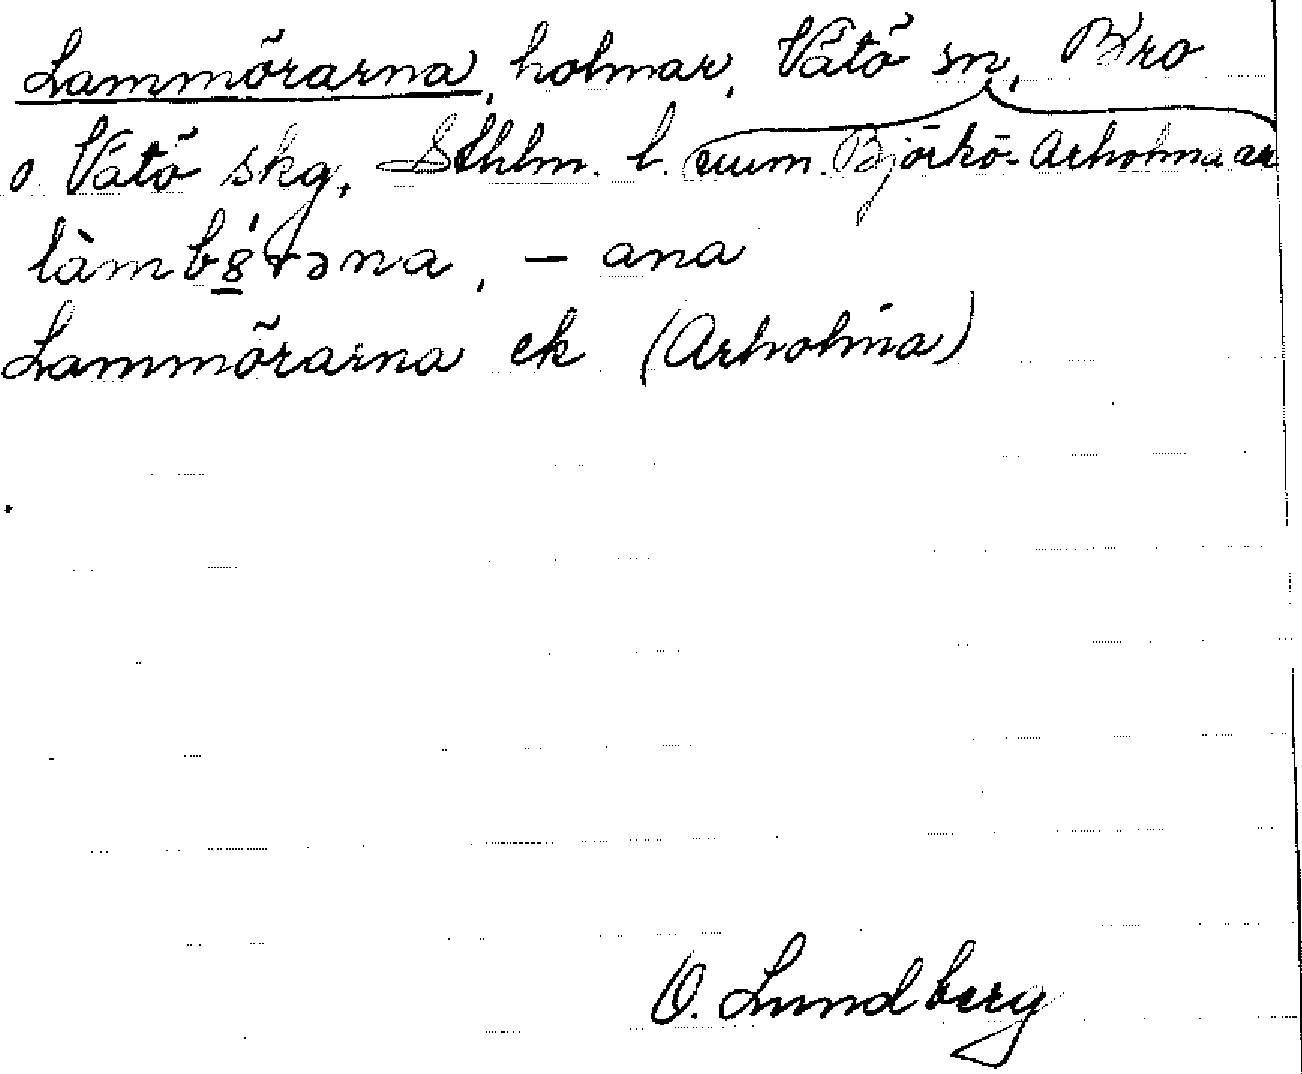 Lammörarna, holmar, Vätö sn, Bro
o Vätö skg, Sthlm. l. (num. Björkö-Arholma
làmb8́rəna, – ana
Lammörarna ek (Arholma)
O. Lundberg